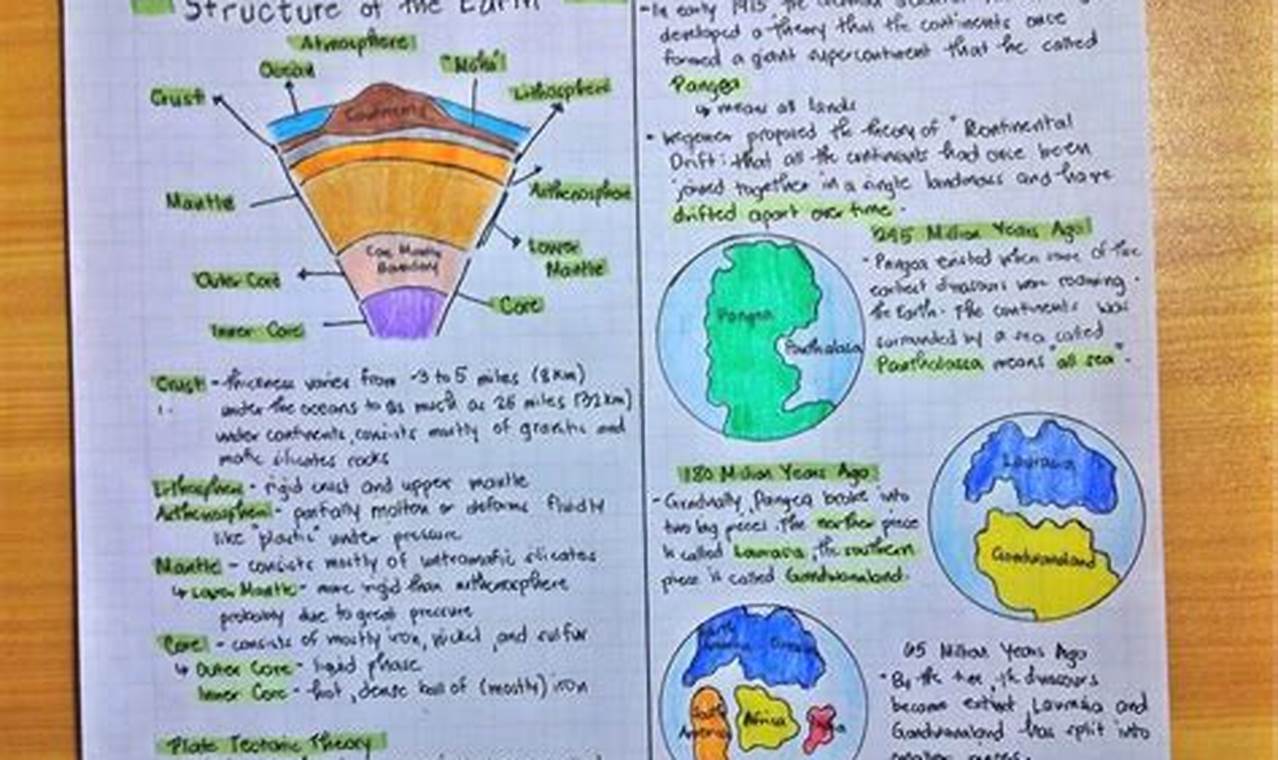 Structure of the Earth
Atmosphere
Ocean
"Moho"
Crust
Lithosphere
Sediments
Mantle
Asthenosphere
Core, Mantle
Boundary
Lower
Mantle
Outer Core
Core
Inner Core
Crust - thickness varies from ~3 to 5 miles (8km)
under the oceans to as much as 25 miles (32km)
under continents, consists mostly of granitic and
mafic silicates rocks
Lithosphere - rigid crust and upper mantle
Asthenosphere - partially molten or deforms fluidly
like "plastic" under pressure
Mantle - consists mostly of ultramafic silicates
↳ Lower Mantle - more rigid than asthenosphere
probably due to great pressure
Core - consists of mostly iron, nickel, and sulfur
↳ Outer Core - liquid phase
Inner Core - hot, dense ball of (mostly) iron
Plate Tectonic Theory
- In early 1915 the
developed a theory that the continents once
formed a giant supercontinent that he called
Pangea
↳ means all lands
• Wegener proposed the theory of "Continental
Drift: that all the continents had once been
joined together in a single landmass and have
drifted apart over time.
245 Million Years Ago
- Pangea existed when some of the
earliest dinosaurs were roaming
the Earth. The continents was
surrounded by a sea called
Panthalassa means "all sea".
Pangea
Panthalassa
180 Million Years Ago
- Gradually, Pangea broke into
two big pieces. The northern piece
is called Laurasia, the southern
piece is called Gondwanaland.
Laurasia
Gondwanaland
65 Million Years Ago
• By the time, the dinosaurs
became extinct, Laurasia and
Gondwanaland has split into
smaller pieces.
North
America
Eurasia
South
America
Africa